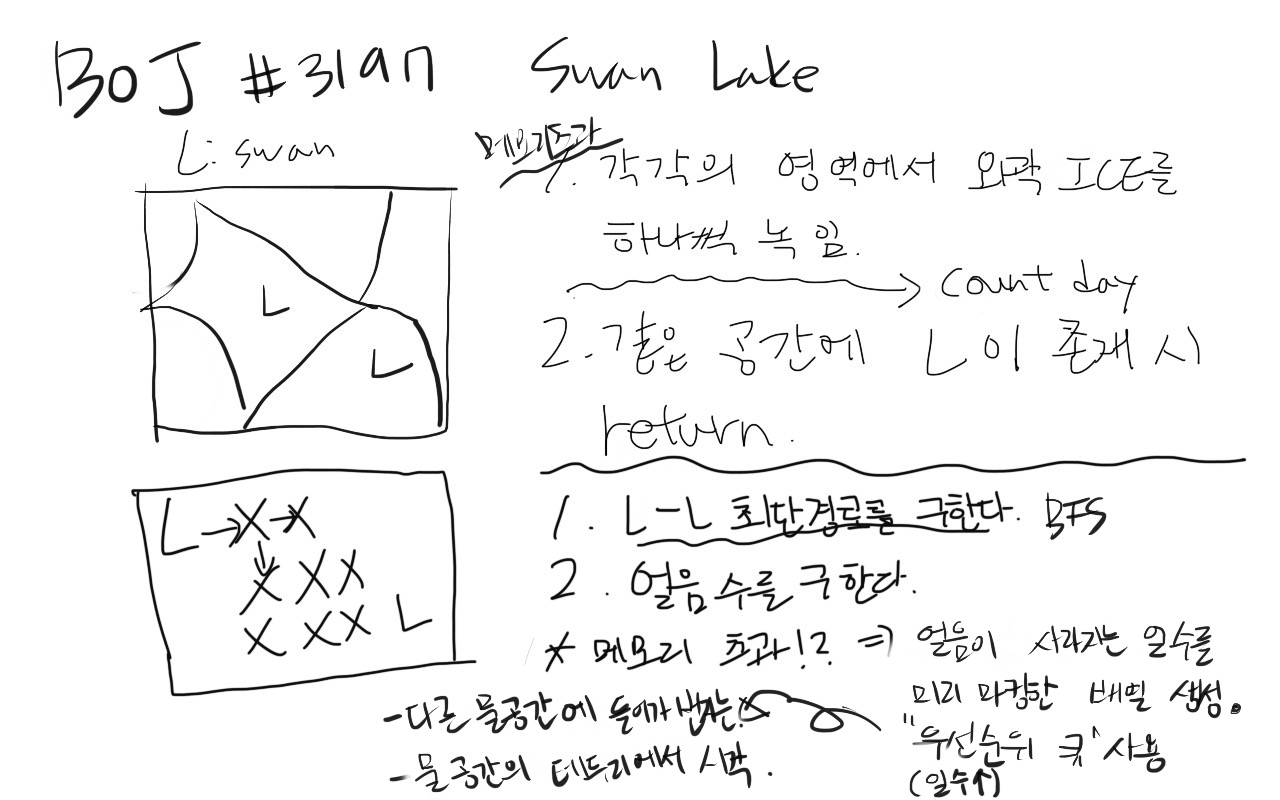 BOJ #3197 Swan Lake
L: swan
메모리초과
1. 각각의 영역에서 외곽 ICE를
하나씩 녹임.
count day
2. 같은 공간에 L이 존재 시
return.
L
L
1. L-L 최단경로를 구한다. BFS
2. 얼음 수를 구한다.
L X X
X X X
X X X L
* 메모리 초과!? ⇒ 얼음이 사라지는 일수를
미리 마킹한 배열 생성.
"우선순위 큐" 사용
(일수↑)
-다른 물공간에 들어가
-물공간의 테두리에서 시작.